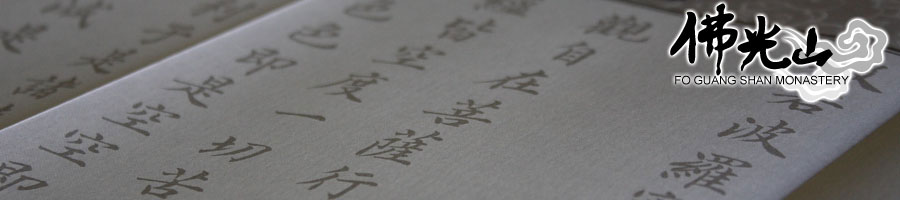 佛光山
FO GUANG SHAN MONASTERY
若波羅
觀自在菩薩行
皆空度一切苦
色色即是空空即
子是